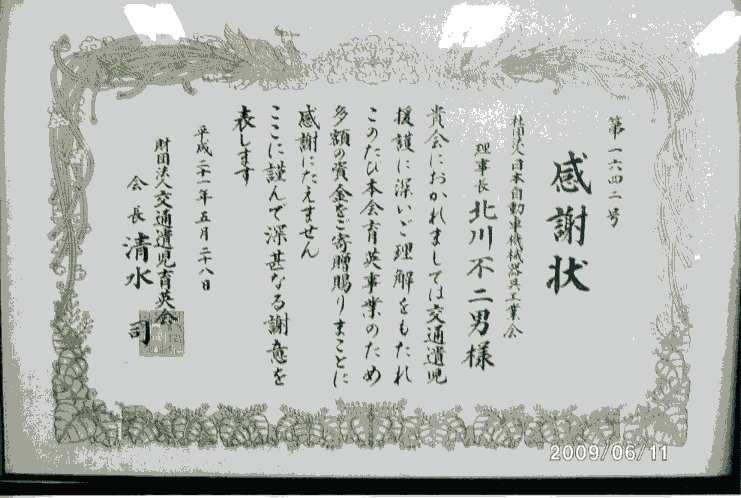 第一六四二号
感謝状
社団法人日本自動車機械器具工業会
理事長 北川不二男様
貴会におかれましては交通遺児
援護に深いご理解をもたれ
このたび本会育英事業のため
多額の資金をご寄贈賜りまことに
感謝にたえません
ここに謹んで深甚なる謝意を
表します
平成二十一年五月二十八日
財団法人交通遺児育英会
会長 清水 司
2009/06/11